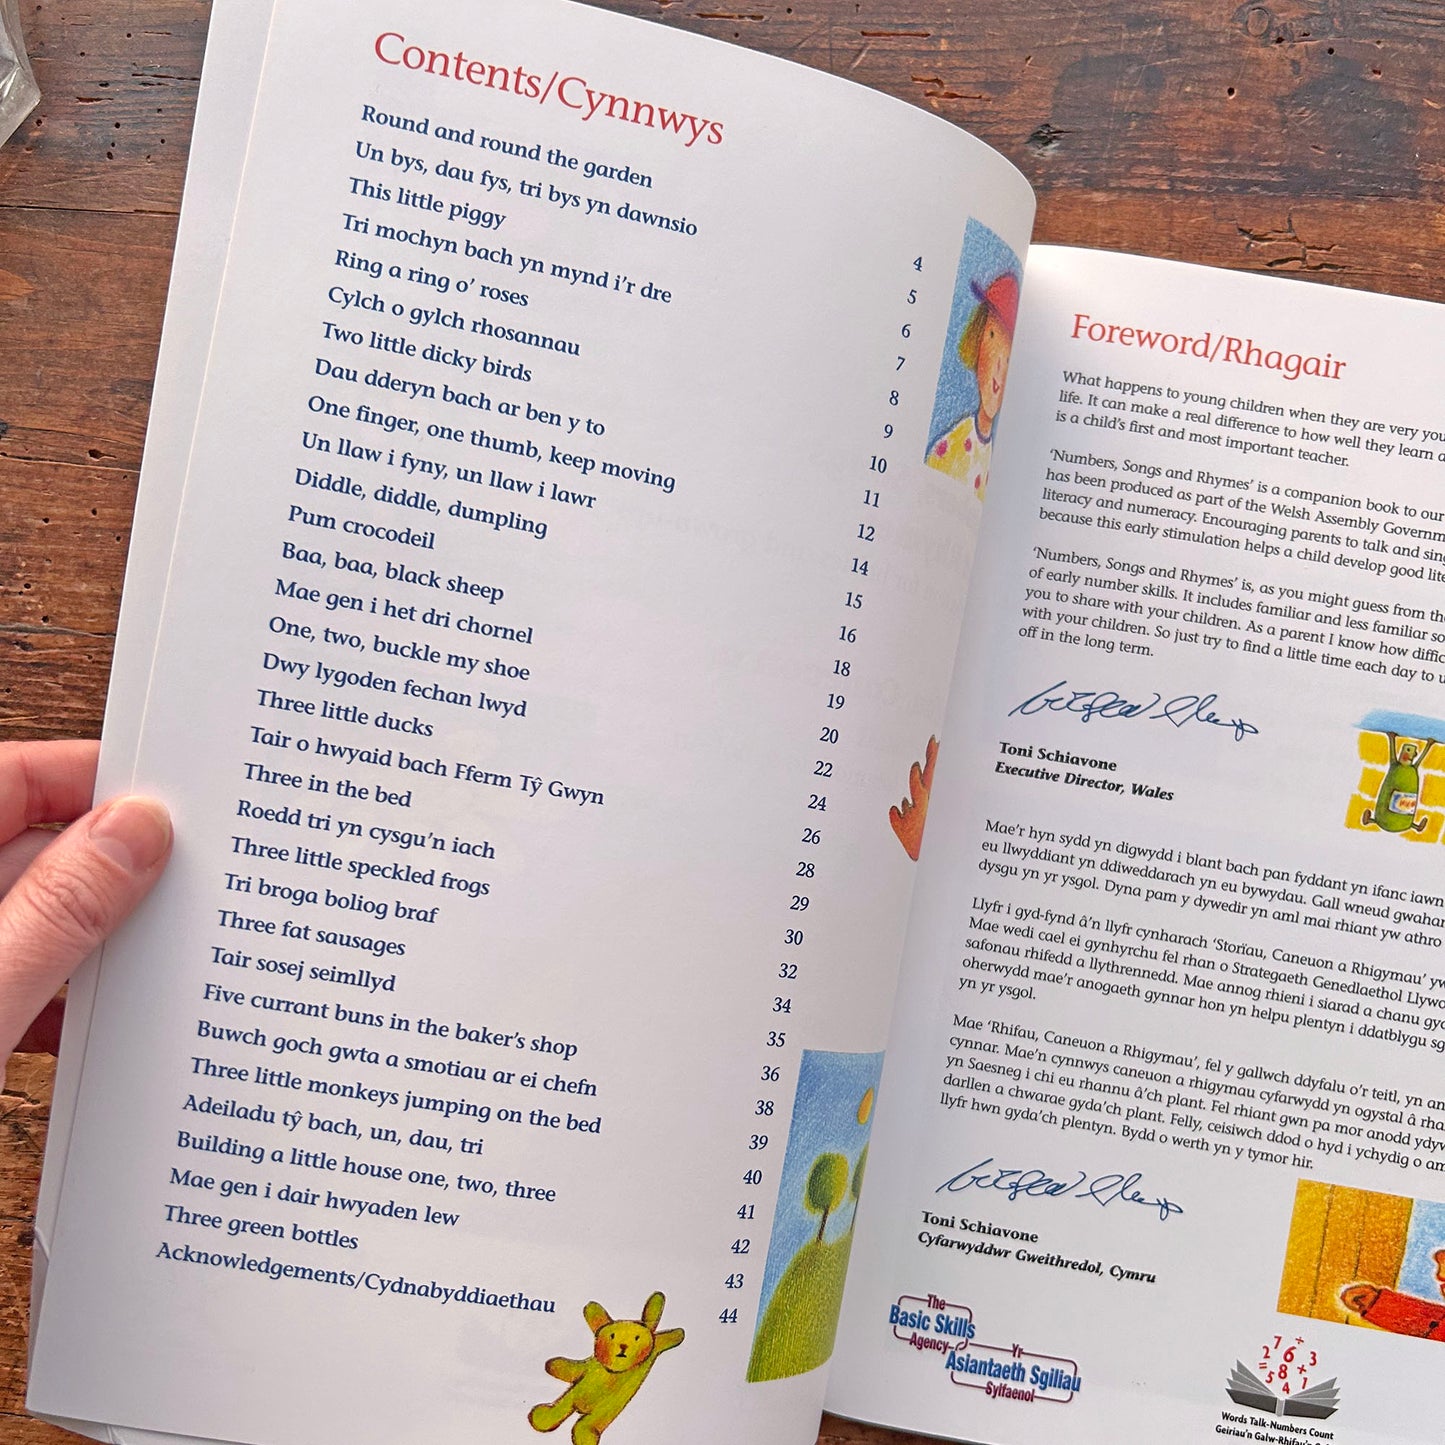 Contents/Cynnwys
Round and round the garden 4
Un bys, dau fys, tri bys yn dawnsio 5
This little piggy 6
Tri mochyn bach yn mynd i'r dre 7
Ring a ring o' roses 8
Cylch o gylch rhosannau 9
Two little dicky birds 10
Dau dderyn bach ar ben y to 11
One finger, one thumb, keep moving 12
Un llaw i fyny, un llaw i lawr 14
Diddle, diddle, dumpling 15
Pum crocodeil 16
Baa, baa, black sheep 18
Mae gen i het dri chornel 19
One, two, buckle my shoe 20
Dwy lygoden fechan lwyd 22
Three little ducks 24
Tair o hwyaid bach Fferm Tŷ Gwyn 26
Three in the bed 28
Roedd tri yn cysgu'n iach 29
Three little speckled frogs 30
Tri broga boliog braf 32
Three fat sausages 34
Tair sosej seimllyd 35
Five currant buns in the baker's shop 36
Buwch goch gwta a smotiau ar ei chefn 38
Three little monkeys jumping on the bed 39
Adeiladu tŷ bach, un, dau, tri 40
Building a little house one, two, three 41
Mae gen i dair hwyaden lew 42
Three green bottles 43
Acknowledgements/Cydnabyddiaethau 44
Foreword/Rhagair
What happens to young children when they are very
life. It can make a real difference to how well they learn
is a child's first and most important teacher.
'Numbers, Songs and Rhymes' is a companion book to our
has been produced as part of the Welsh Assembly
literacy and numeracy. Encouraging parents to talk and
because this early stimulation helps a child develop good
'Numbers, Songs and Rhymes' is, as you might guess from
of early number skills. It includes familiar and less familiar
you to share with your children. As a parent I know how
with your children. So just try to find a little time each day to
off in the long term.
Toni Schiavone
Executive Director, Wales
Mae'r hyn sydd yn digwydd i blant bach pan fyddant yn ifanc iawn
eu llwyddiant yn ddiweddarach yn eu bywydau. Gall wneud
dysgu yn yr ysgol. Dyna pam y dywedir yn aml mai rhiant yw athro
Llyfr i gyd-fynd â'n llyfr cynharach 'Storïau, Caneuon a Rhigymau'
Mae wedi cael ei gynhyrchu fel rhan o Strategaeth Genedlaethol
safonau rhifedd a llythrennedd. Mae annog rhieni i siarad a chanu
oherwydd mae'r anogaeth gynnar hon yn helpu plentyn i ddatblygu
yn yr ysgol.
Mae 'Rhifau, Caneuon a Rhigymau', fel y gallwch ddyfalu o'r teitl, yn
cynnar. Mae'n cynnwys caneuon a rhigymau cyfarwydd yn ogystal â
yn Saesneg i chi eu rhannu â'ch plant. Fel rhiant gwn pa mor anodd
darllen a chwarae gyda'ch plant. Felly, ceisiwch ddod o hyd i ychydig o
llyfr hwn gyda'ch plentyn. Bydd o werth yn y tymor hir.
Toni Schiavone
Cyfarwyddwr Gweithredol, Cymru
The
Basic Skills
Agency
Yr
Asiantaeth Sgiliau
Sylfaenol
7 ÷
2 6 3
= 8 +
5 4 1
Words Talk-Numbers Count
Geiriau'n Galw-Rhifau'n